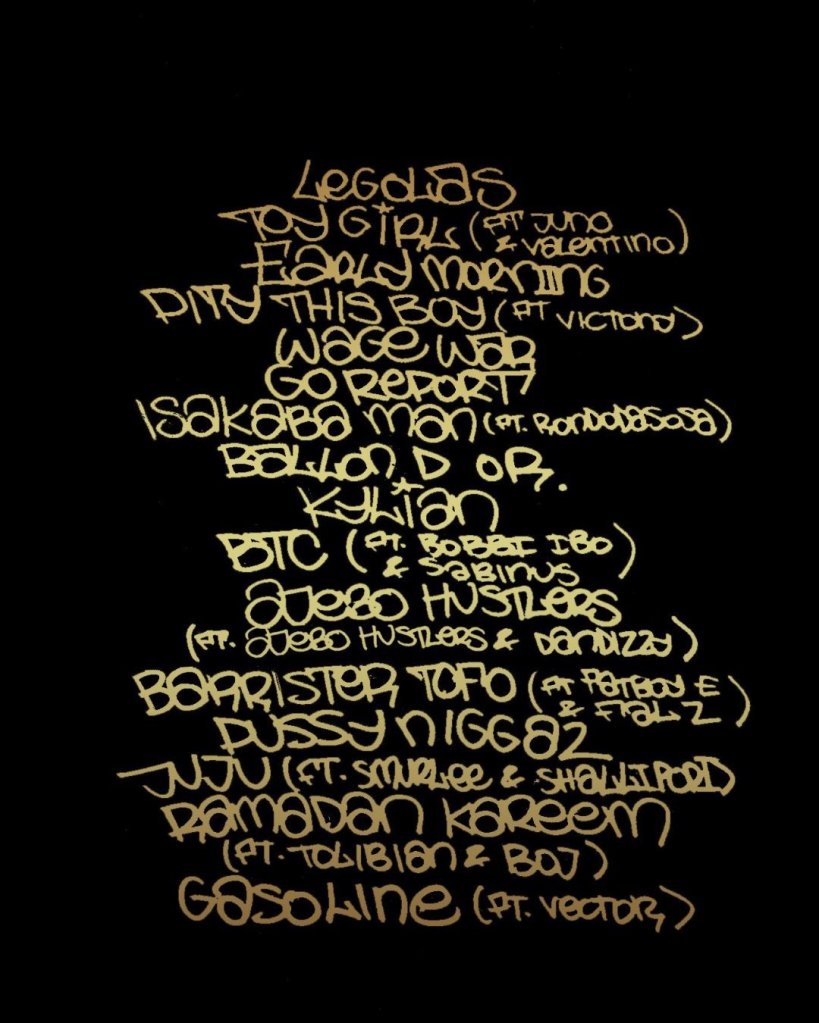 LeGOLaS
TOY GiRL (FT JUNO
& ValeNTiNO)
EaRLY MORNING
PITY THIS BOY (FT VICTONY)
WaGe WaR
GO RePORT
ISaKaBa MaN (FT. RONDODaSOSa)
BaLLON D OR.
KYLiaN
BTC (FT. BOBBI IBO
& SaBINUS
aJeBO HUSTLeRS
(FT. aJeBO HUSTLeRS & DaNDIZZY)
BaRRISTER TOFO (FT FaTBOY E
& FaLZ)
PUSSY NIGGaZ
JUJU (FT. SMURLee & SHaLLIPOPI)
RaMaDaN KaReeM
(FT. TOLIBIaN & BOJ)
GaSOLINe (FT. VeCTOR)